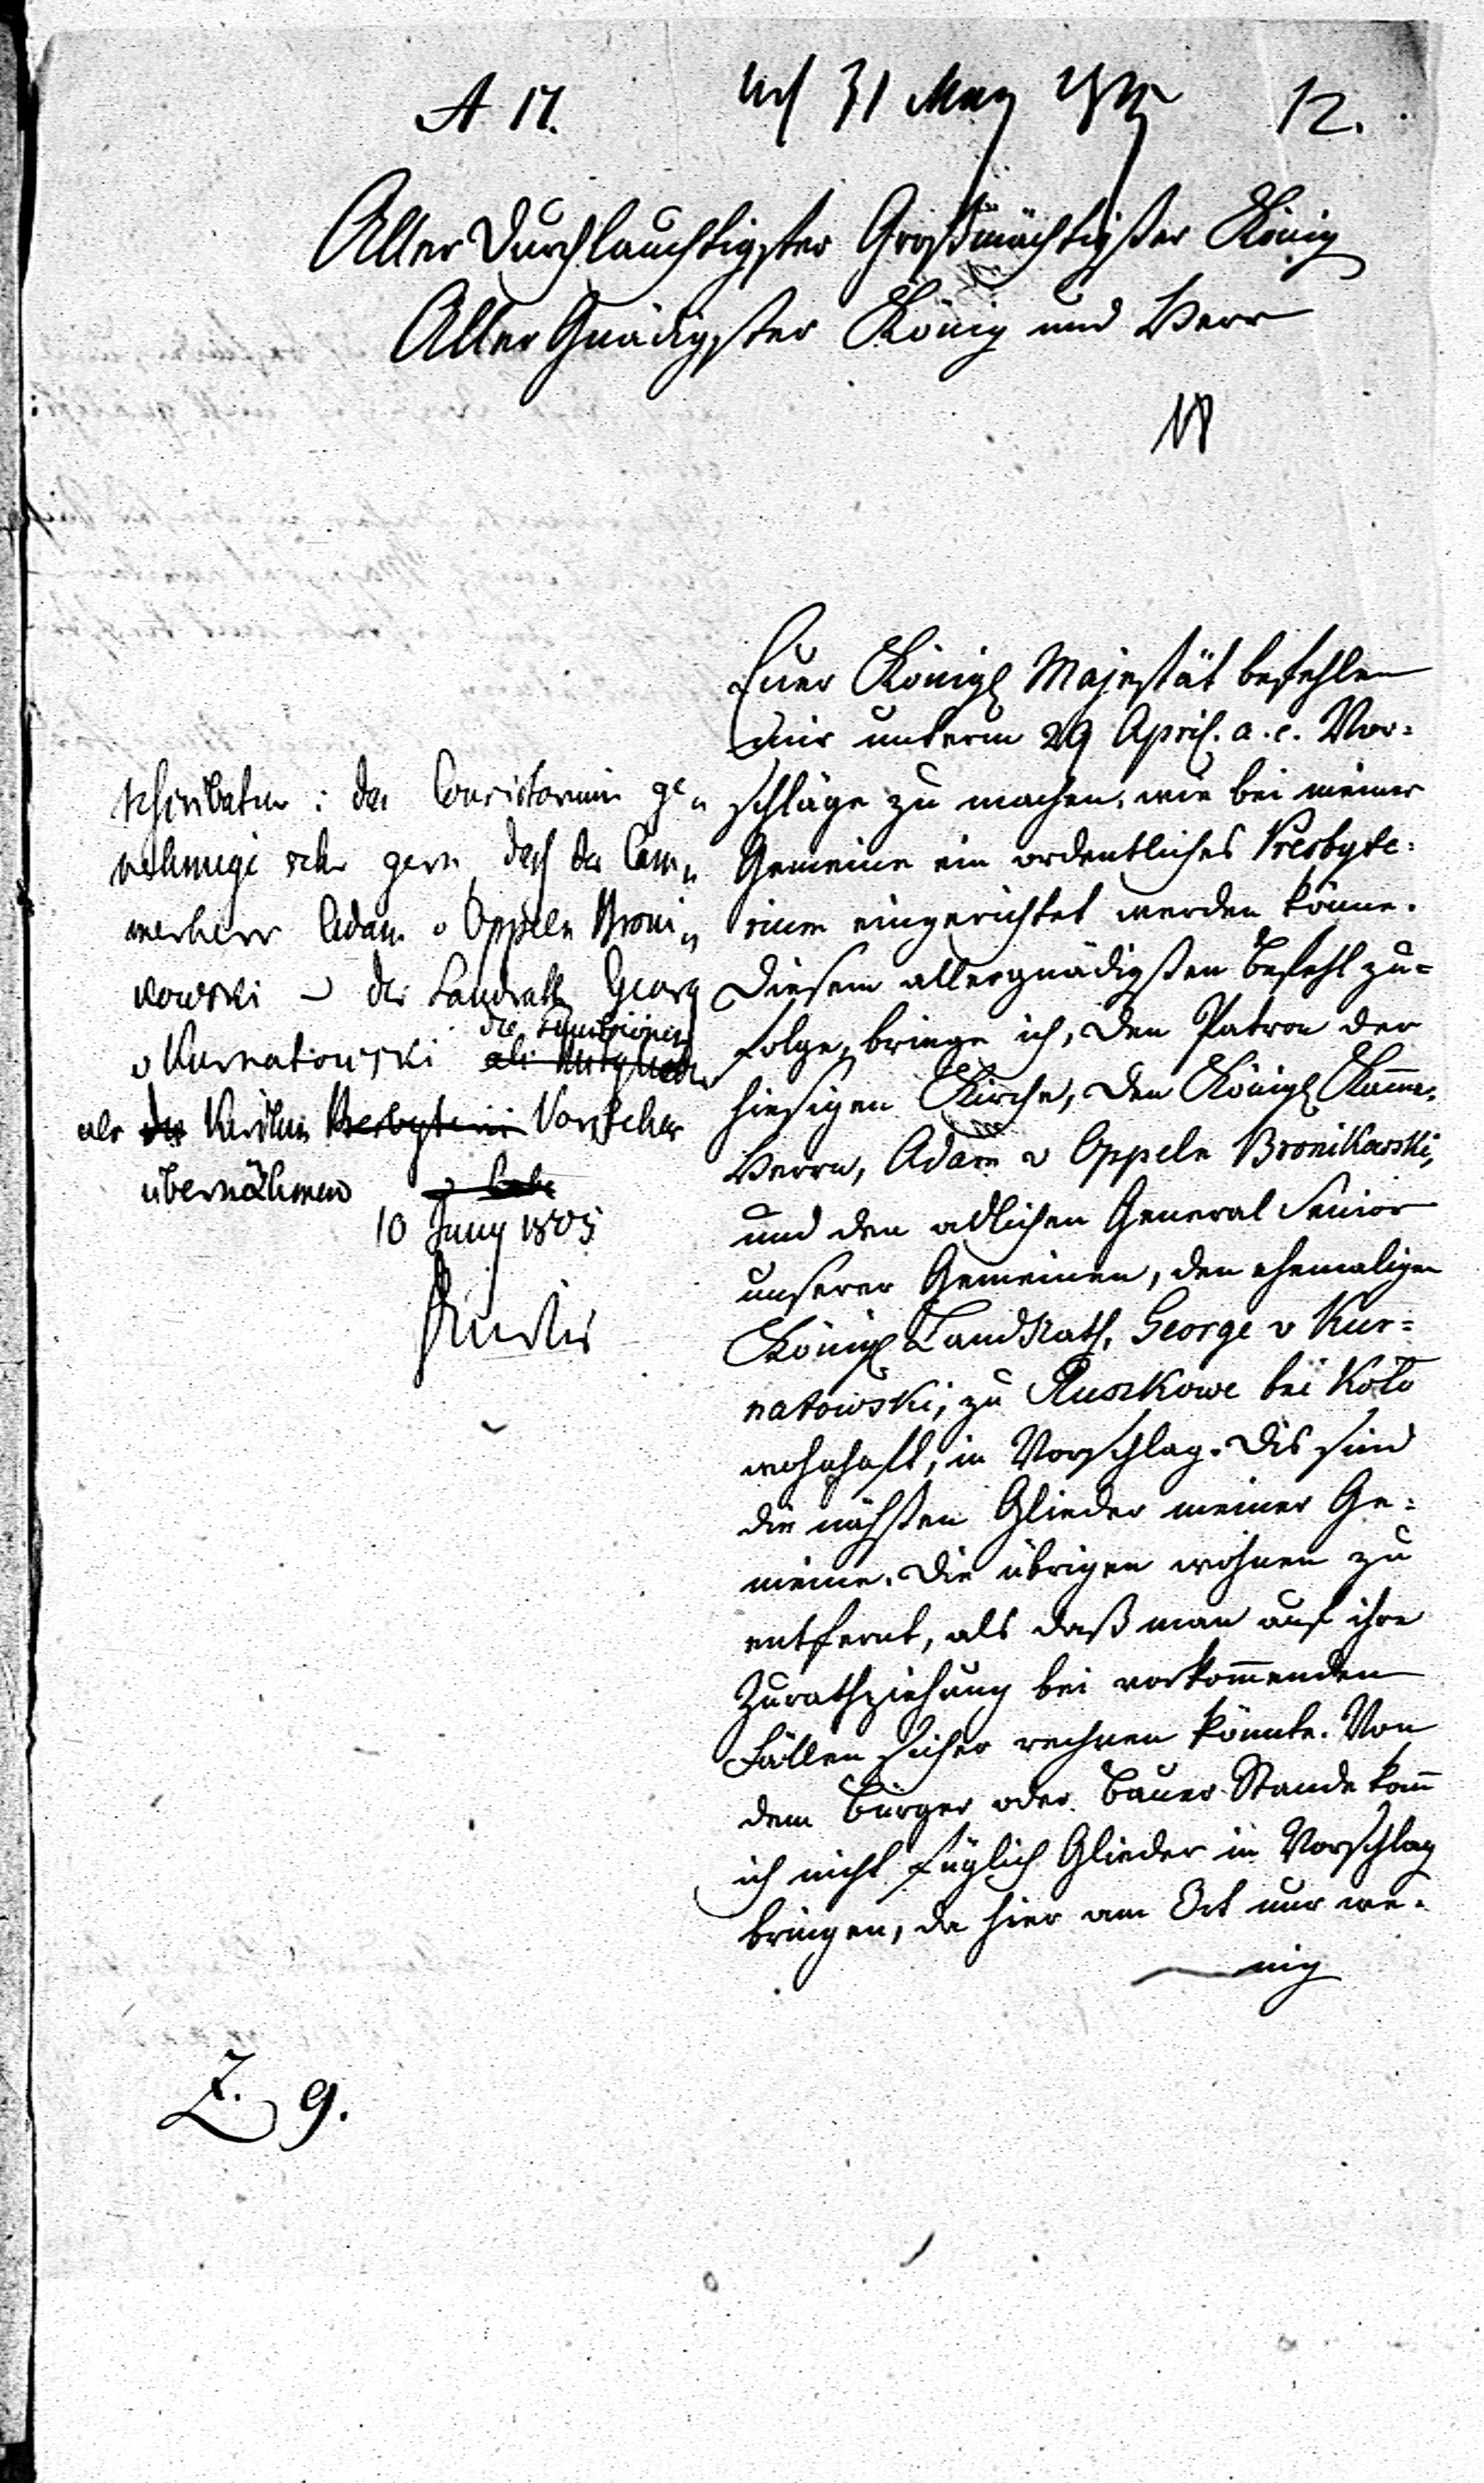 A 17.
31 May
12.
Aller Durchlauchtigster Großmächtigster König
Aller Gnädigster König und Herr
Euer Königl Majestät befehlen
mir unterm 29 April. a. c. Vor=
schläge zu machen, wie bei meiner
Gemeine ein ordentliches Presbyte=
rium eingerichtet werden könne.
Diesem allergnädigsten Befehl zu=
folge, bringe ich, den Patron der
hiesigen Kirche, den Königl Kammer
Herrn, Adam v Oppeln Bronikowski,
und den adlichen General Senior
unserer Gemeinen, den ehemaligen
Königl LandRath, George v Kur=
natowski, zu Ruszkowe bei Koło
wohnhaft, in Vorschlag. Dis sind
die nächsten Glieder meiner Ge=
meine. Die übrigen wohnen zu
entfernt, als daß man auf ihre
Zurathziehung bei vorkom̄enden
Fällen sicher rechnen könnte. Von
dem Bürger oder Bauer Stande kan̄
ich nicht füglich Glieder in Vorschlag
bringen, da hier am Ort nur we=
nig
: das Consistorium ge„
nehmige sehr gern daß der Cam„
merherr Adam v Oppeln Broni„
kowski der Landrath Georg
v Kurnatowski die Functionen
als Kirchen Presbyterii Vorsteher
übernähmen
10 Juny 1805
Z. 9.